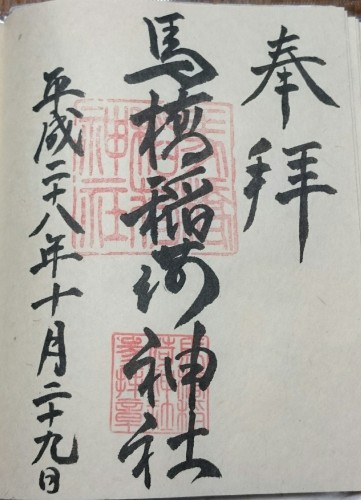 奉拝
馬橋稲荷神社
平成二十八年十月二十九日